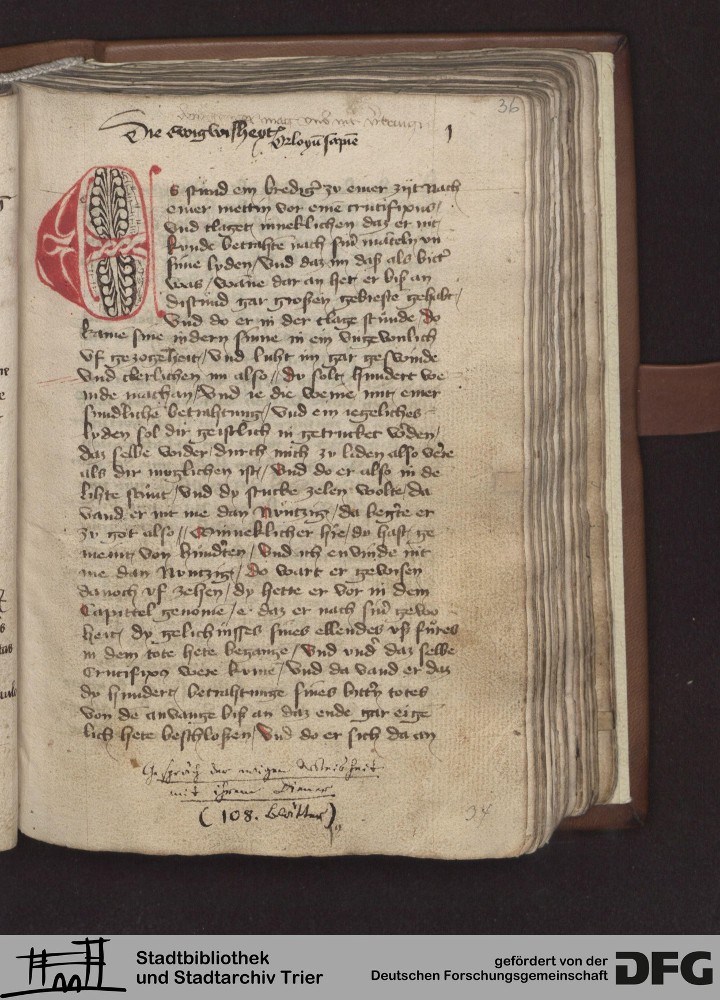 36
Die ewig wisheyt
Orloyū sapiē
1
Es stund ein bredig' zv einer zijt nach
einer mettin vor eime crucifixus/
Vnd claget inneklichen daz er nit
kvnde betrahte nach sin' marteln vn
sime lyden/ Vnd daz im daß als bitt'
was/ wanne dar an het er biß an
die stund gar großen gebreste gehabt/
Vnd do er in der clage stunde do
kame sine indern sinne in ein vngewonlich
vf gezogeheit/ Vnd luht im gar geswinde
vnd clerlichen in also// Dv solt hundert ve
nide machan/ Vnd ie die venie mit einer
sundliche betrahtung/ Vnd ein iegeliches
lyden sol dir geistlich in getrucket w'den/
daz selbe wider durch mich zv liden also verre
als dir muglichen ist/ Vnd do er also in de
lihte stunt/ Vnd dy stucke zelen wolte/ da
vand er nit me dan Nvntzig/ da begerte er
zv got also// Minneklicher h're/ dv hast ge
meint von hundrten/ Vnd ich envinde nit
me dan Nvntzig/ Do wart er gewisen
danoch vf zehen/ dy hette er vor in dem
Capittel genome/ e daz er nach sin' gewo
heit/ dy gelichnisses sines ellendes vß fůres
in dem tote hete begange/ Vnd vnd' daz selbe
Crucifixus were kvme/ Vnd da vand er daz
dy hundert betrahtunge sines bitt'n totes
von de anvange biß an daz ende gar eige
lich hete beschloßen/ Vnd do er sich da an
Gespräch der ewigen Weisheit
mit ihrem Diener
(108. blätter)
34
Stadtbibliothek
und Stadtarchiv Trier
gefördert von der
Deutschen Forschungsgemeinschaft
DFG